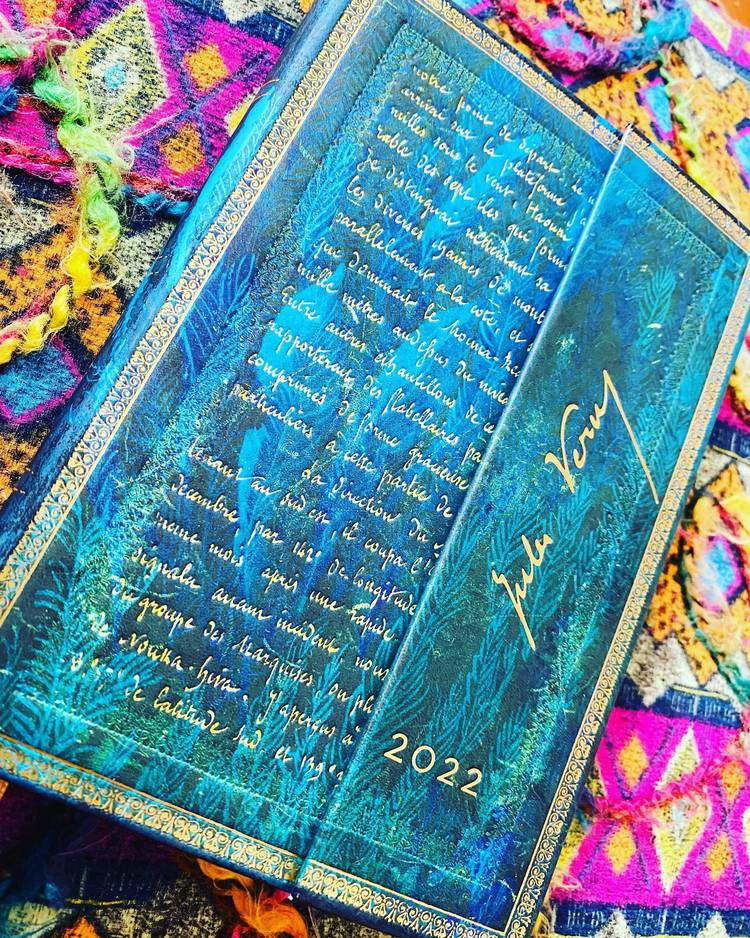 notre point de départ. Je
arrivai sur la plateforme. J'a
milles sous le vent. Haouai
rable des sept îles qui form
Je distinguai nettement sa
les diverses chaines de mont
parallelement a la côte, et
que dominait le Mouna-Rea
mille mètres audessus du nive
Entre autres échantillons de ce
rapporterent des flabellaires pa
comprimés de forme gracieuse
particuliers à cette partie de
La direction du
tenant au sud est, il coupa l'
décembre par 142° de longitude
meme mois après une rapide
signala aucun incident, nous
du groupe des Marquises.
de Nouka-hiva. J'aperçus à
de latitude sud et 139°
Jules Verne
2022